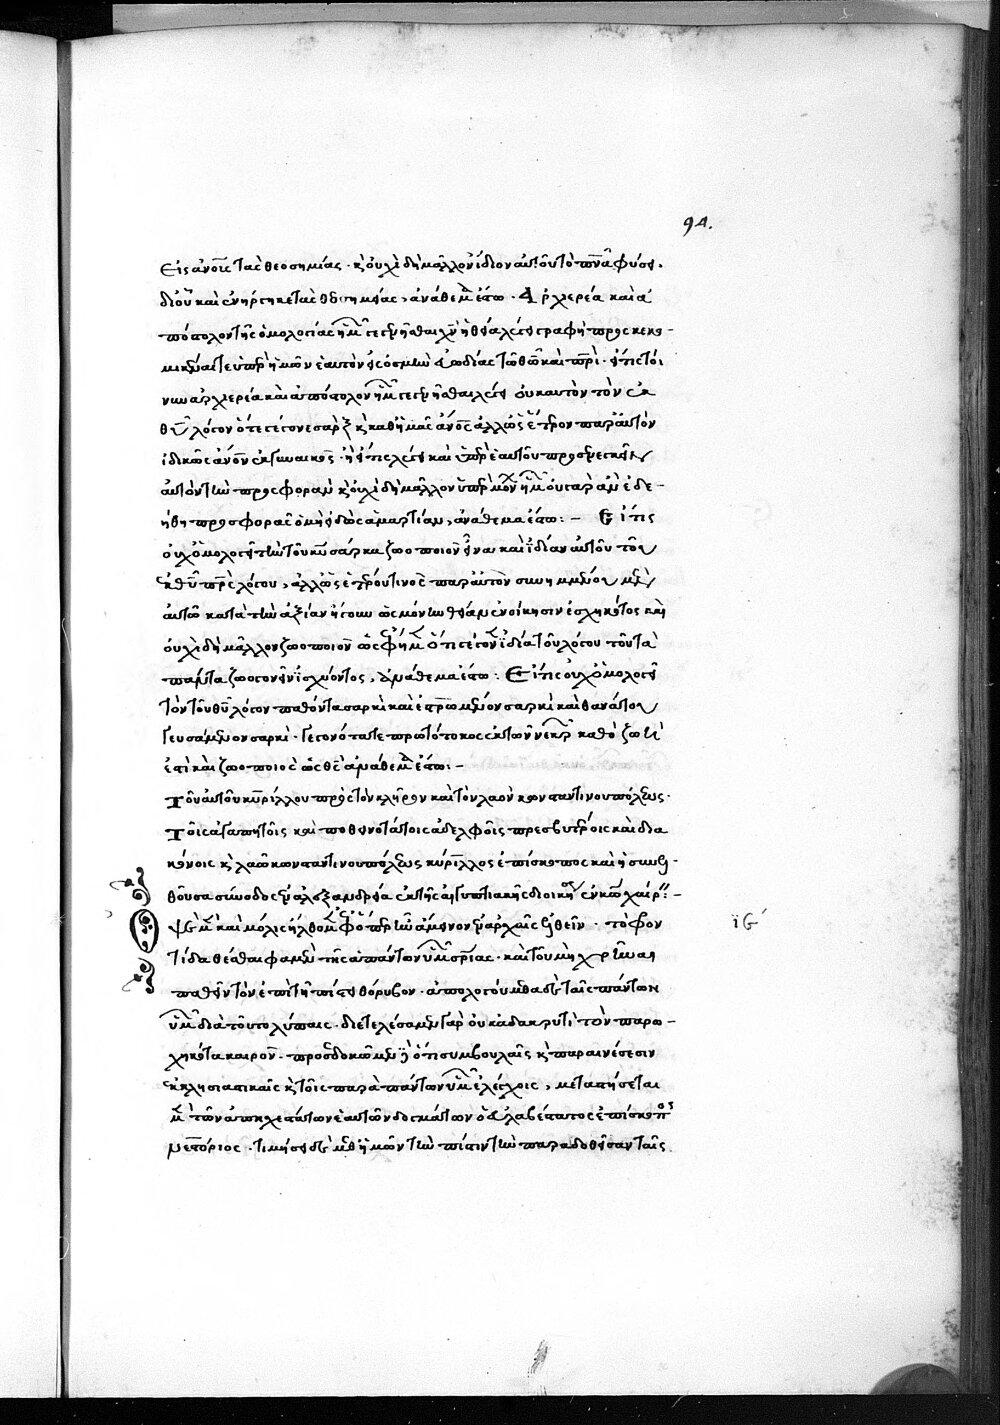 94.
εἰς ἀνους τὰς θεοσημίας · κ οὐχὶ δὴ μᾶλλον ἴδιον αὐτοῦ τὸ πνα φησι
δι οὗ καὶ ἐνήργηκε τὰς θεοσημίας, ἀνάθεμα ἔστω · Ἀρχιερέα καὶ ἀ
πόστολον τῆς ὁμολογίας ἡμ γεγενῆσθαι χν ἡ θεία λέγει γραφὴ προσκεκο-
μικέναι τε ὑπὲρ ἡμῶν ἑαυτὸν εἰς ὀσμὴν εὐωδίας τῶ θω καὶ πρι · εἴ τις τοί
νυν ἀρχιερέα καὶ ἀπόστολον ἡμ γεγενῆσθαι λέγει οὐκ αὐτὸν τὸν ἐκ
θυ λόγον ὅτε γέγονε σαρξ κ καθ ἡμᾶς ἀνος ἀλλ ὡς ἕτερον παρ αὐτὸν
ἰδικῶς ἀνον ἐκ γυναικος · ἢ εἴ τις λέγει καὶ ὑπὲρ ἑαυτοῦ προσενεγκεῖν
αὐτὸν τὴν προσφορὰν κ οὐχὶ δὴ μᾶλλον ὑπὲρ μόνων ἡμ οὐ γὰρ ἂν ἐδε-
ήθη προσφορᾶς ὁ μὴ εἰδὼς ἁμαρτίαν, ἀνάθεμα ἔστω: – Εἴ τις
οὐχ ὁμολογεῖ τὴν τοῦ κυ σάρκα ζωοποιὸν εἶναι καὶ ἰδίαν αὐτοῦ τοῦ
ἐκ θυ πρς λόγου, ἀλλ ὡς ἑτέρου τινὸς παρ αὐτὸν συνημμένου μὲν
αὐτῶ κατὰ τὴν ἀξίαν ἤγουν ὡς μόνην θείαν ἐνοίκησιν ἐσχηκότος καὶ
οὐχὶ δὴ μᾶλλον ζωοποιὸν ὡς ἔφημεν ὅτι γέγονεν ἰδία τοῦ λόγου τοῦ τὰ
πάντα ζωογονεῖν ἰσχύοντος, ἀνάθεμα ἔστω : Εἴ τις οὐχ ὁμολογεῖ
τὸν τοῦ θυ λόγον παθόντα σαρκὶ καὶ ἐστρωμένον σαρκὶ καὶ θανάτου
γευσάμενον σαρκὶ · γεγονότα τε πρωτότοκος ἐκ τῶν νεκρ καθὸ ζωή
ἐστι καὶ ζωοποιὸς ὡς θς ἀνάθεμα ἔστω: –
Τοῦ αὐτοῦ κυρίλλου πρὸς τὸν κλῆρον καὶ τὸν λαὸν κωνσταντινουπόλεως ·
Τοῖς ἀγαπητοῖς καὶ ποθεινοτάτοις ἀδελφοῖς πρεσβυτέροις καὶ δια
κόνοις κ λαῶ κωνσταντινουπόλεως κύριλλος ἐπίσκοπος καὶ ἡ συνελ-
θοῦσα σύνοδος ἐν ἀλεξανδρεία ἐκ τῆς αἰγυπτιακῆς διοικη ἐν κω χαίρ –
ὀψὲ μ καὶ μόλις ἤλθομεν ἐφ ὅπερ ἦν ἄμεινον ἐν ἀρχαῖς ἐλθεῖν · τὸ φρον
τίδα θέσθαι φαμὲν τῆς ἁπάντων ὑμ σρίας · καὶ τοῦ μὴ χρῆναι
παθεῖν τὸν ἐπὶ τῆ πίστει θόρυβον · ἀπολογούμεθα δὲ ταῖς πάντων
ὑμ διὰ τοῦτο λύπαις · διετελέσαμεν γὰρ οὐκ ἀδακρυτὶ τὸν παρω-
χηκότα καιρόν · προσδοκῶμεν ὅτι συμβουλαῖς κ παραινέσεσιν
ἐκκλησιαστικαῖς κ τοῖς παρὰ πάντων ὑμ ἐλέγχοις, μεταπήσεται
μ τῶν ἀπηχεστάτων ἑαυτῶν δογμάτων ὁ εὐλαβέστατος ἐπίσκοπος
νεστόριος · τιμήσει δὲ μεθ ἡμῶν τὴν πίστιν τὴν παραδοθεῖσαν ταῖς